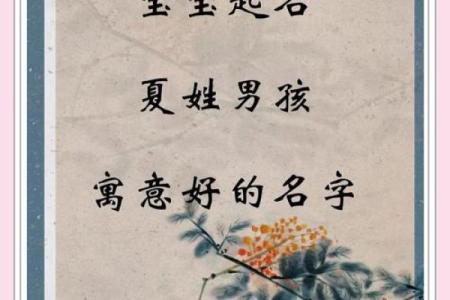 宝宝起名
夏姓男孩
寓意好的名字